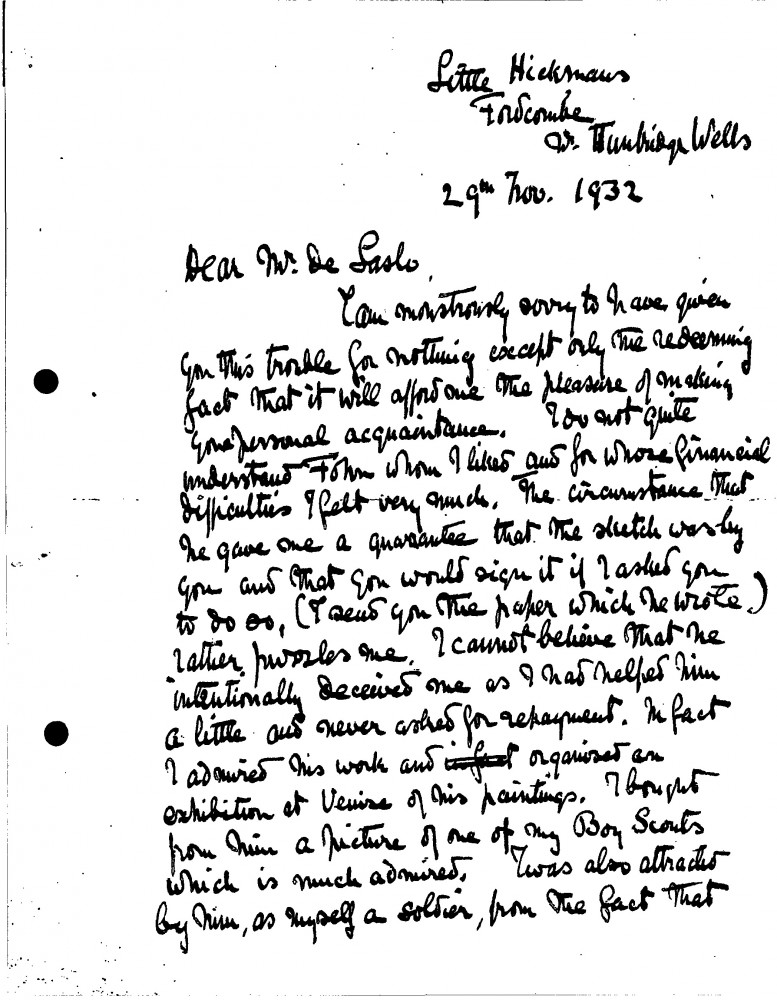 Little Hickmans
Fordcombe
Nr. Tunbridge Wells
29th Nov. 1932
Dear Mr. De Laslo,
I am monstrously sorry to have given
you this trouble for nothing except only the redeeming
fact that it will afford me the pleasure of making
your personal acquaintance. I do not quite
understand John whom I liked and for whose financial
difficulties I felt very much. The circumstance that
he gave me a guarantee that the sketch was by
you and that you would sign it if I asked you
to do so, (I send you the paper which he wrote.)
rather puzzles me. I cannot believe that he
intentionally deceived me as I had helped him
a little and never asked for repayment. In fact
I admired his work and in fact organised an
exhibition at Venice of his paintings. I bought
from him a picture of one of my Boy Scouts
which is much admired. I was also attracted
by him, as myself a soldier, from the fact that